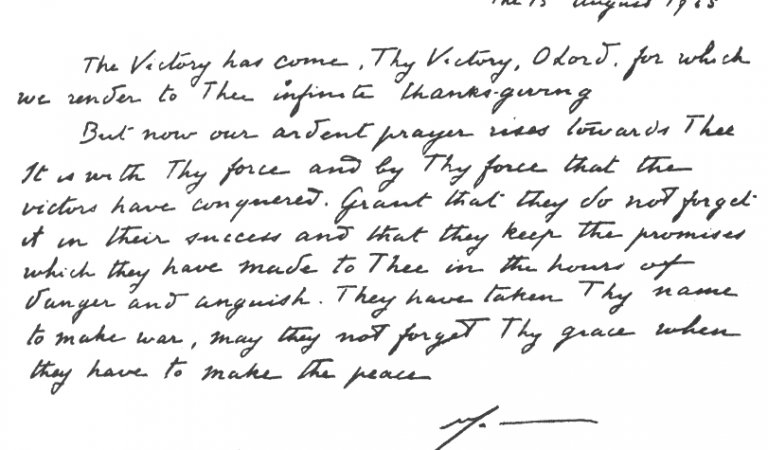 The 15 August 1945
The Victory has come, Thy Victory, O Lord, for which
we render to Thee infinite thanks-giving
But now our ardent prayer rises towards Thee
It is with Thy force and by Thy force that the
victors have conquered. Grant that they do not forget
it in their success and that they keep the promises
which they have made to Thee in the hours of
danger and anguish. They have taken Thy name
to make war, may they not forget Thy grace when
they have to make the peace